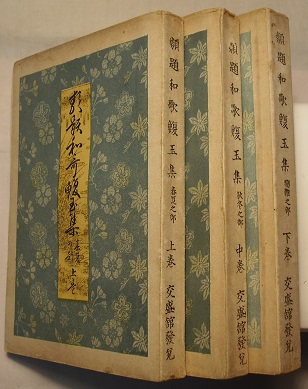 類題和哥鰒玉集
上巻
類題和歌鰒玉集 春夏之部 上巻 交盛館發兌
類題和歌鰒玉集 秋冬之部 中巻 交盛館發兌
類題和歌鰒玉集 戀雜之部 下巻 交盛館發兌